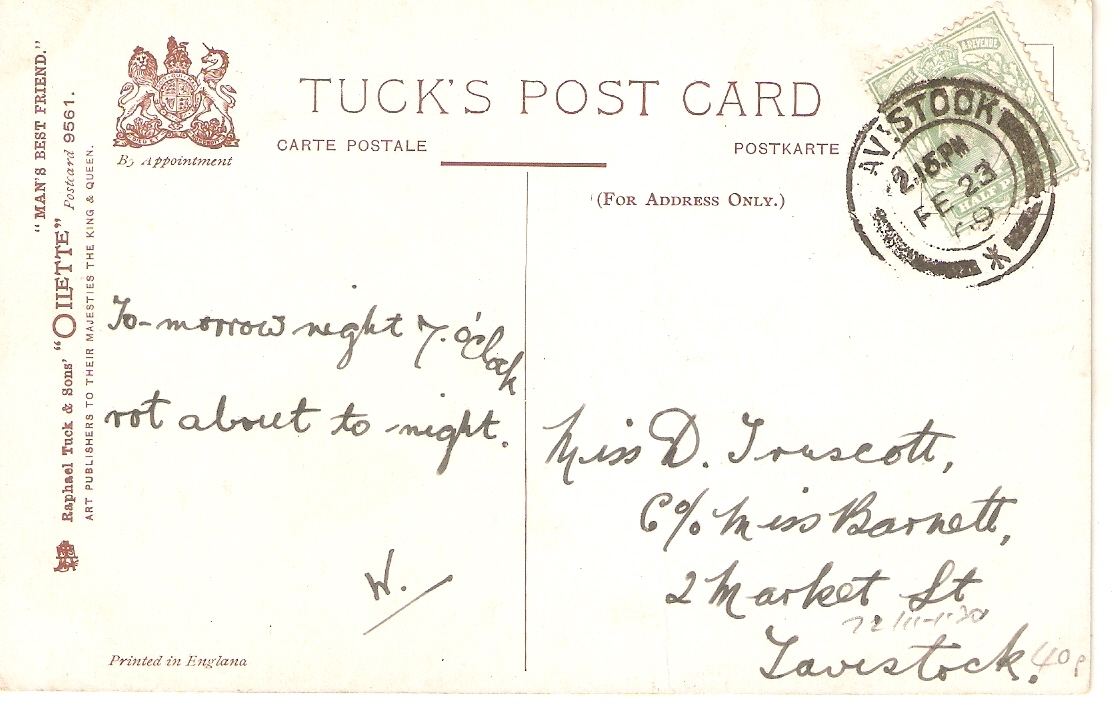 "MAN'S BEST FRIEND."
Raphael Tuck & Sons' "OILETTE" Postcard 9561.
ART PUBLISHERS TO THEIR MAJESTIES THE KING & QUEEN.
By Appointment
TUCK'S POST CARD
CARTE POSTALE
POSTKARTE
(FOR ADDRESS ONLY.)
REVENUE
HALF
AVISTOCK
2.15.PM
FE 23
09
To-morrow night 7. o'clock
not about to-night.
W.
Miss D. Truscott,
C/o Miss Barnett,
2 Market St
Tavistock.
40p
Printed in England